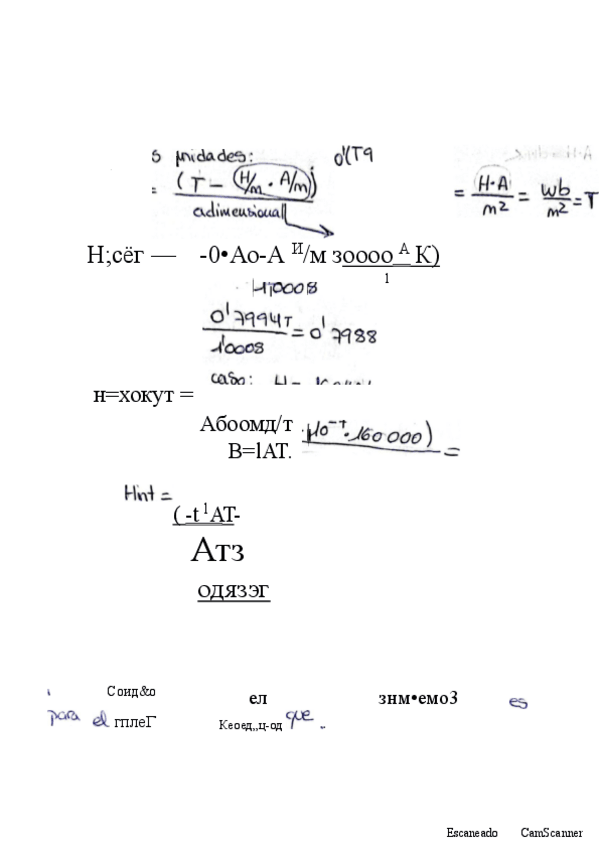 s unidades: o'(T9
= (T - H/m · A/m)
adimensional
= H·A/m² = wb/m² = T
Н;сёг — -0•Ао-А И/м зоооо__А К)
1
H10008
0'7994T/1'0008 = 0'7988
caso: H=
н=хокут =
Абоомд/т
·10⁻⁷·160 000) =
В=lАТ.
Hint =
( -t 1 АТ-
Атз
одязэг
Соид&о ел знм•емо3 es
para el гплеГ Кеоед,,ц-од que
Escaneado CamScanner